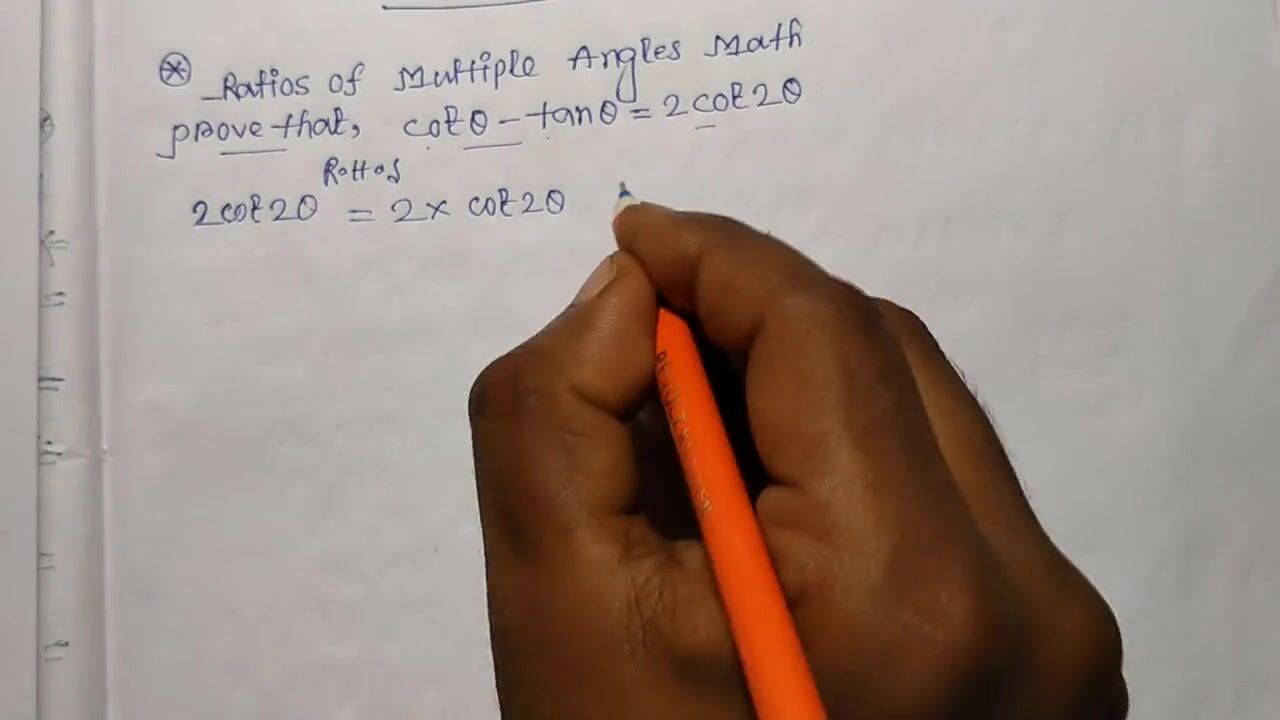 Ratios of Multiple Angles Math
prove that, cotθ - tanθ = 2cot2θ
2cot2θ = 2× cot2θ